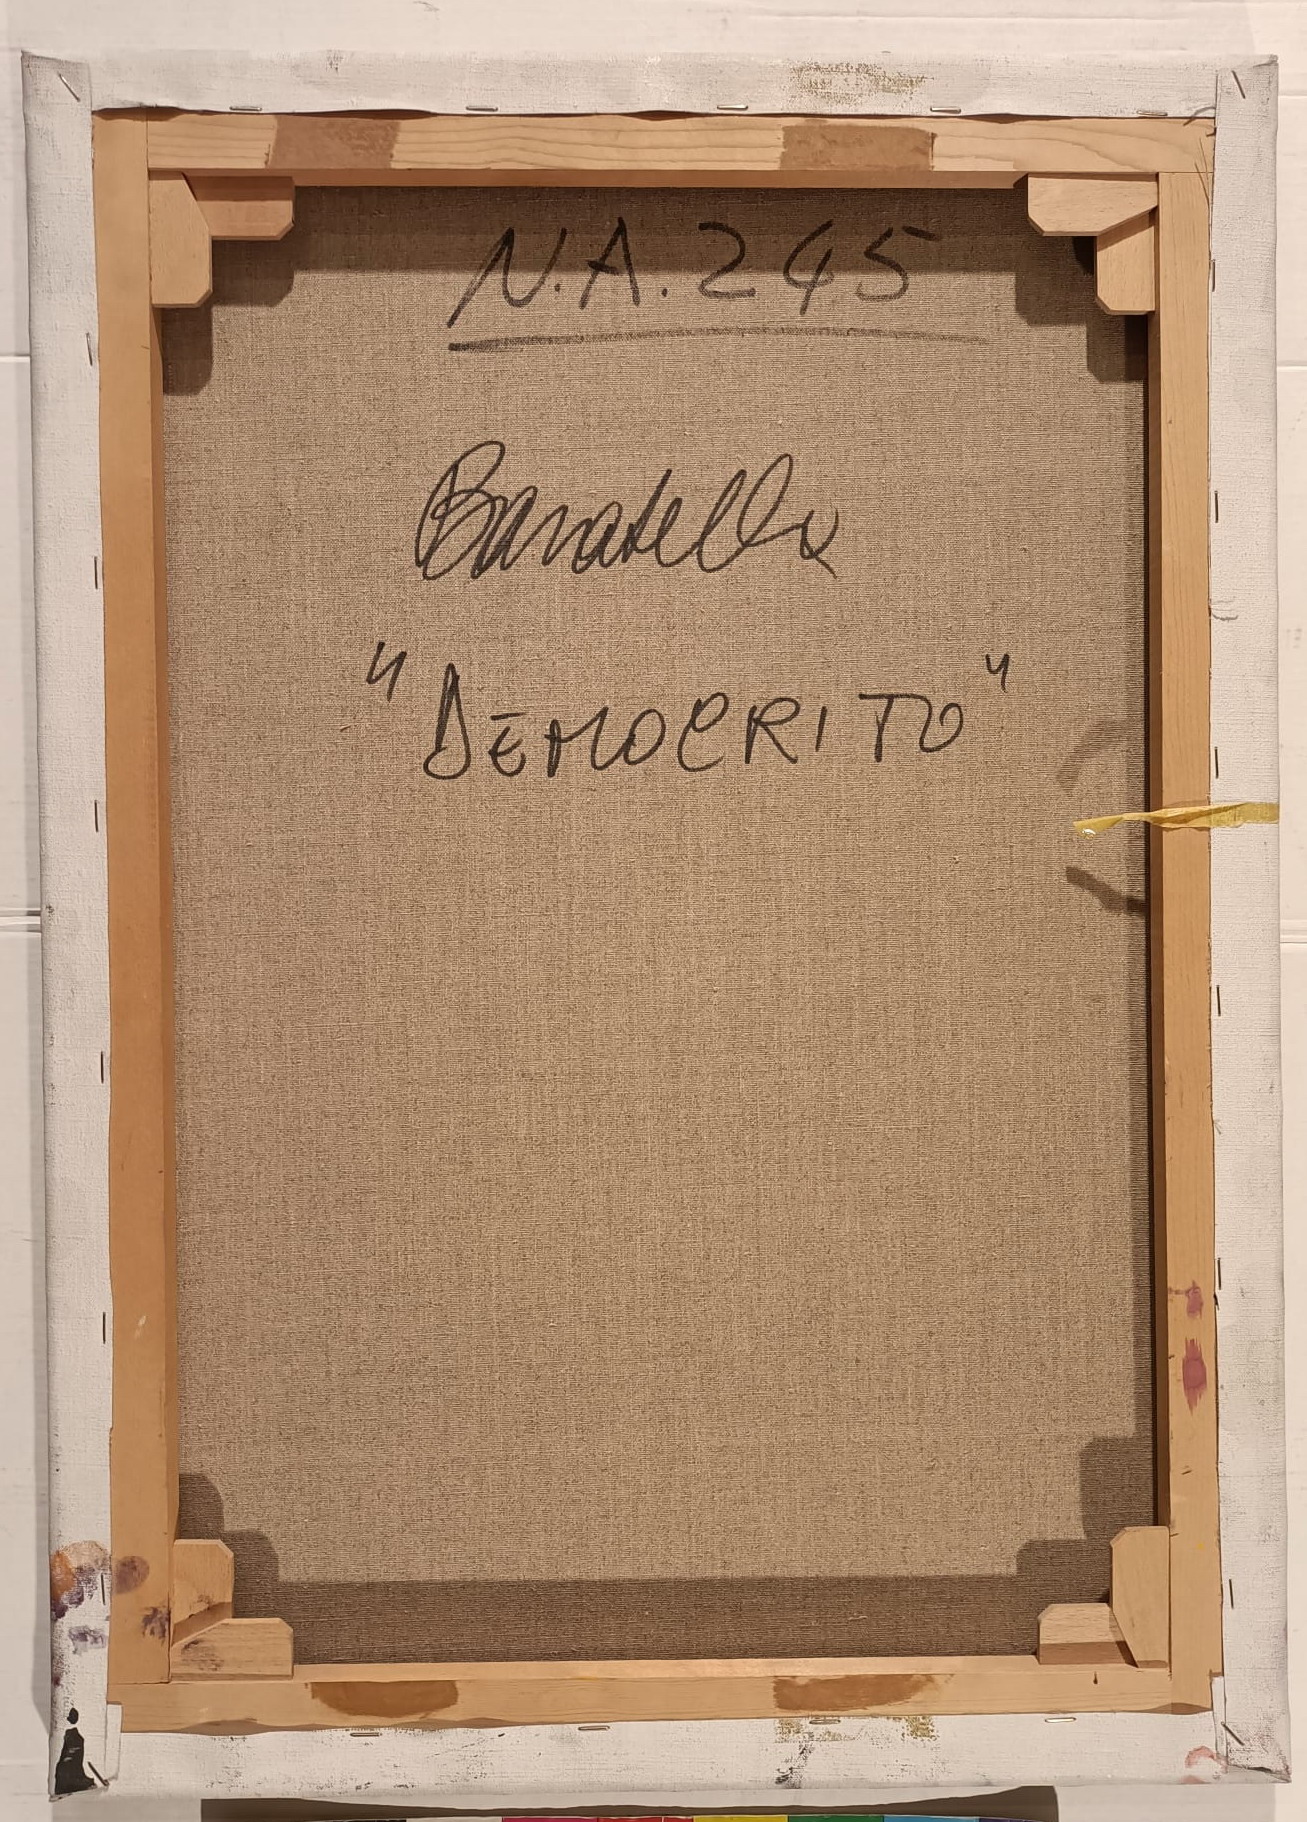 N.A. 245
Baratella
"DEMOCRITO"